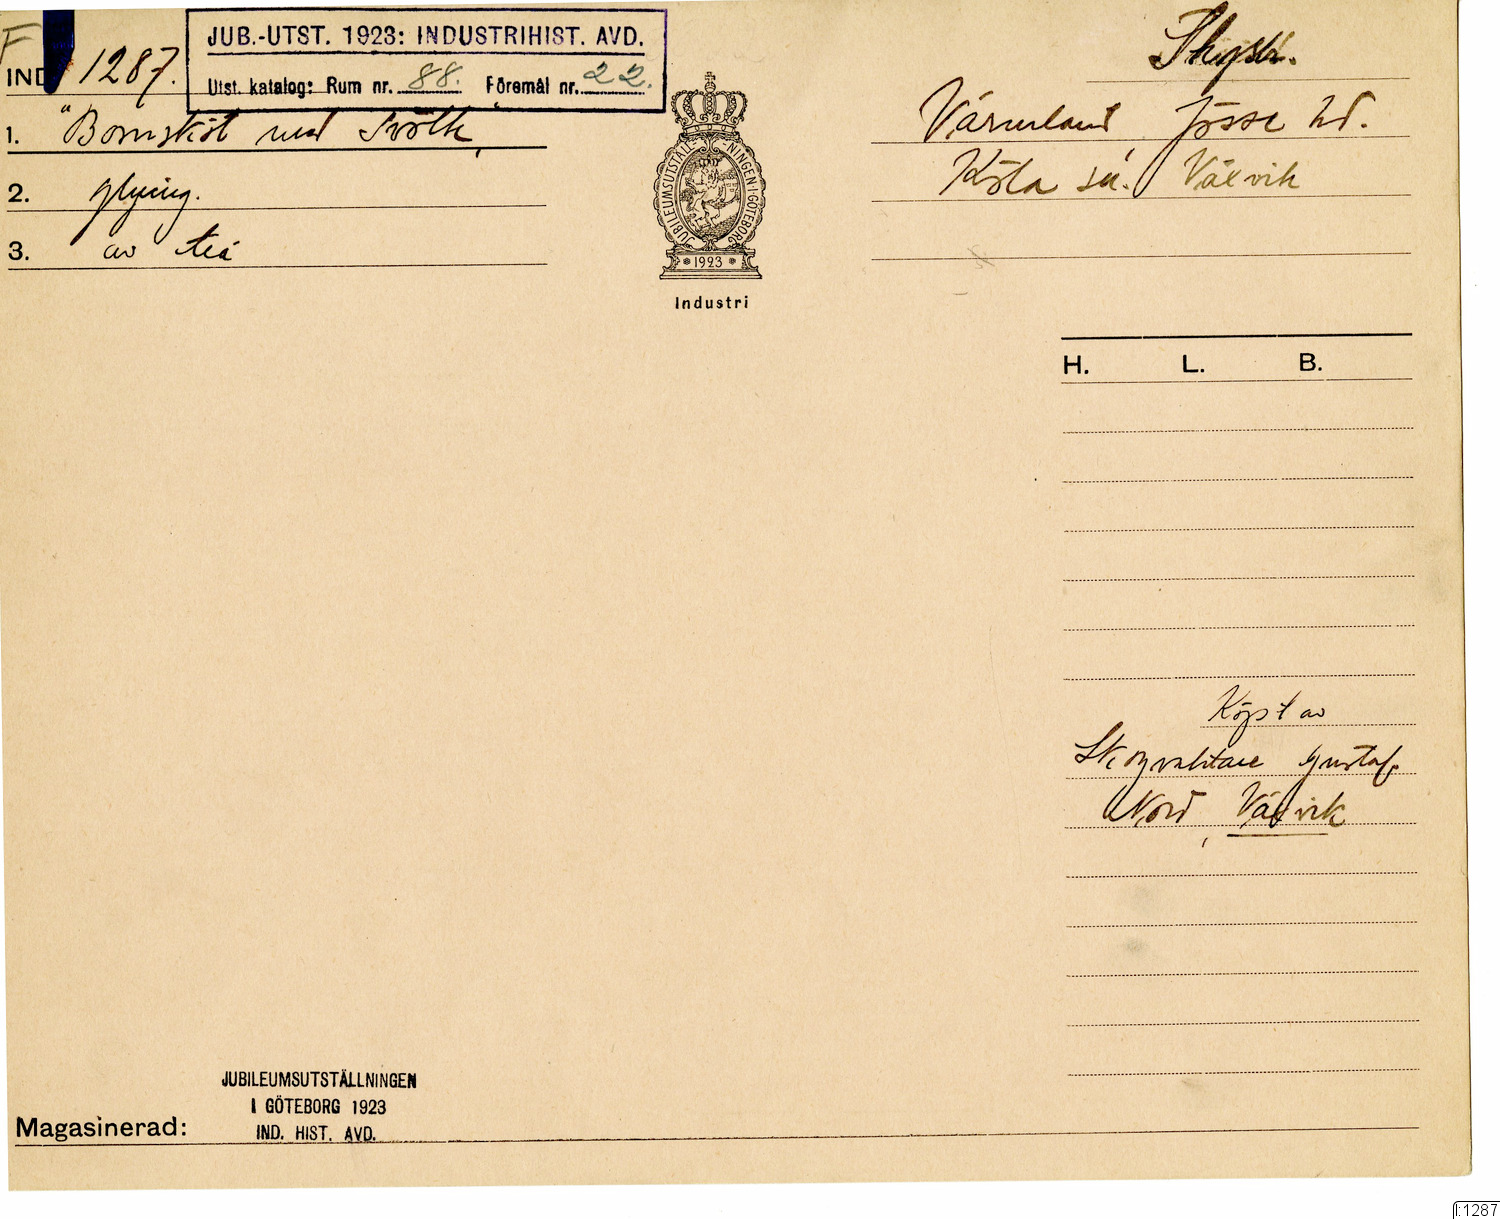 F
IND. 1287.
JUB.-UTST. 1923: INDUSTRIHIST. AVD.
Utst. katalog: Rum nr. 88. Föremål nr. 22.
1. "Bomsköt med
2.
3. av trä
JUBILEUMSUTSTÄLL-NINGEN·I·GÖTEBORG
* 1923 *
Industri
Värmland Jösse hd.
Köla sn. Välvik
H. L. B.
Köpt av
Skogvaktare Gustaf
Nord, Välvik
JUBILEUMSUTSTÄLLNINGEN
I GÖTEBORG 1923
IND. HIST. AVD.
Magasinerad:
I:1287